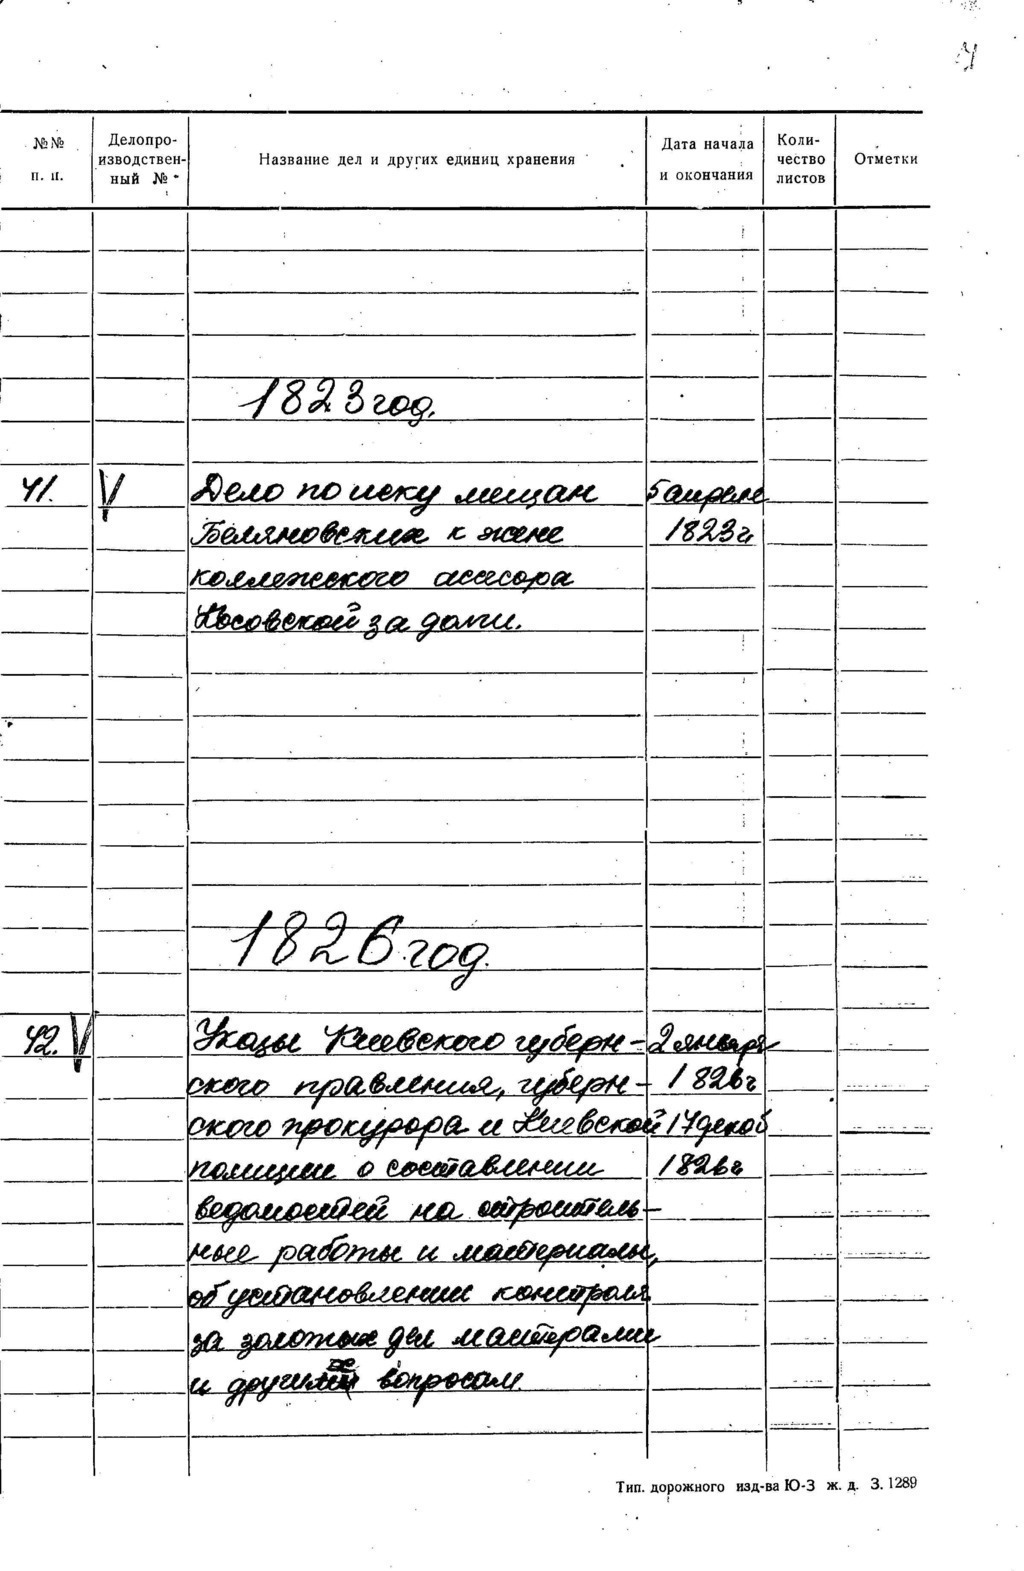 №№ п. п.
Делопроизводственный №
Название дел и других единиц хранения
Дата начала и окончания
Количество листов
Отметки
1823 год.
41. V Дело по иску мещан 5 апреля
Беляновских к жене 1823 г
коллежского асесора
Носовской за долги.
1826 год.
42. V Указы Киевского губерн- 2 января
ского правления, губерн- 1826 г
ского прокурора и Киевской 17 декаб
полиции о составлении 1826 г
ведомостей на строитель-
ные работы и материалы,
об установлении контроля
за золотых дел мастерами
и другим вопросам.
Тип. дорожного изд-ва Ю-З ж. д. З. 1289